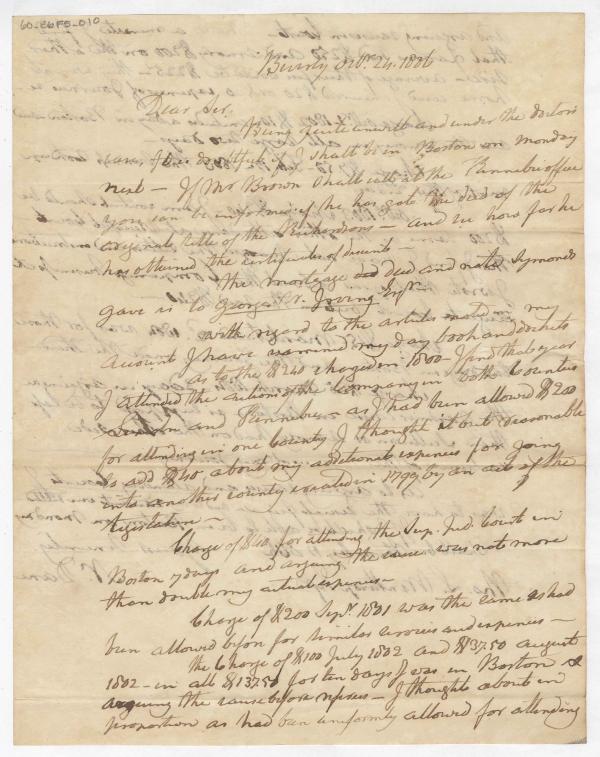 60-E6F5-010
Beverly Octr. 24. 1806
Dear Sir.
Being quite unwell and under the doctors
care, it is doubtful if I shall be in Boston on monday
next — If Mr Brown shall call at the Kennebec office
you can be informed if he has got the deed of the
original title of the Richardsons — and see how far he
has obtained the certificates of descents —
The mortgage deed and note Symonds
gave is to George W. Irving Esqr.
With regard to the articles noted in my
account I have examined my day book and dockets
as to the $240 charged in 1800 — I find that year
I attended the actions of the Company in both Counties
Lincoln and Kennebec — as I had been allowed $200
for attending in one County I thought it but reasonable
to add $40 about my additional expenses for going
into another county erected in 1799 by an act of the
Legislature —
Charge of $40 for attending the Sup. Jud. Court in
Boston 7 days and arguing the cause was not more
than double my actual expenses —
Charge of $200 Sepr. 1801 was the same as had
been allowed before for similar services and expenses —
The Charge of $100 July 1802 and $37.50 august
1802 — in all $137.50 for ten days I was in Boston &
arguing the cause before referees — I thought about in
proportion as had ban uniformly allowed for attending